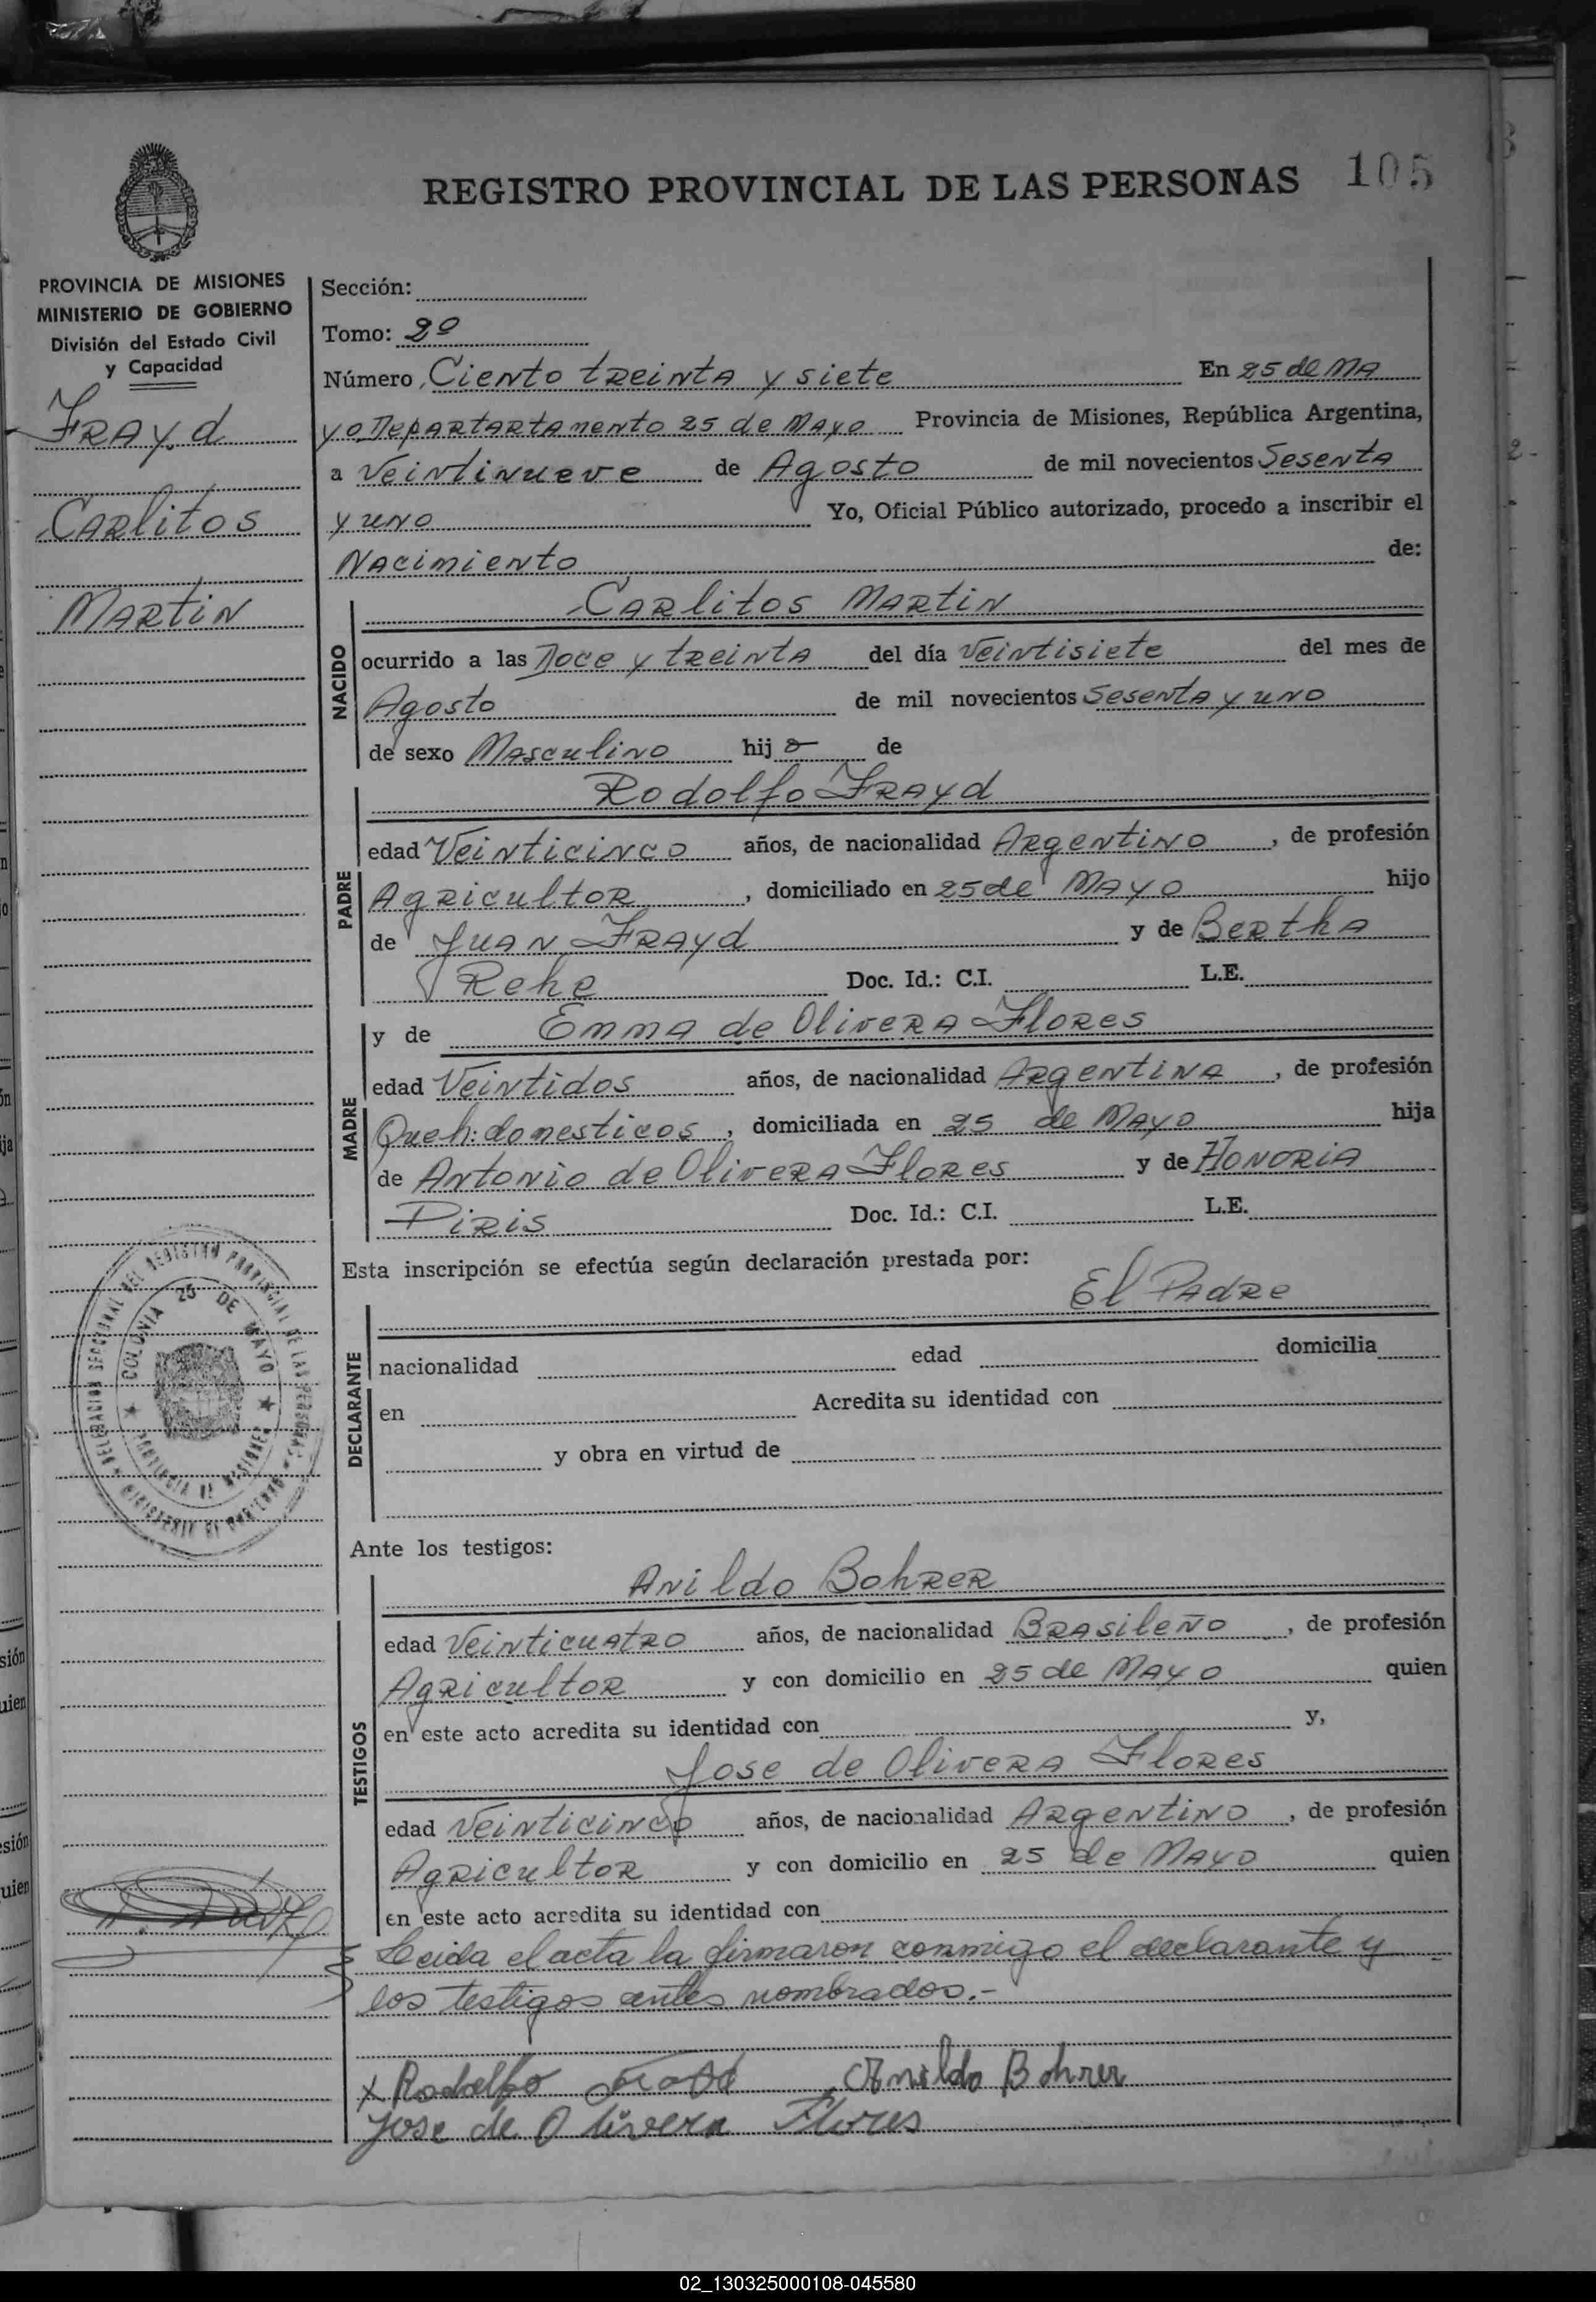 REGISTRO PROVINCIAL DE LAS PERSONAS 105
PROVINCIA DE MISIONES
MINISTERIO DE GOBIERNO
División del Estado Civil
y Capacidad
Frayd
Carlitos
Martin
Sección:
Tomo: 2º
Número Ciento treinta y siete En 25 de Ma
yo Departartamento 25 de Mayo Provincia de Misiones, República Argentina,
a Veintinueve de Agosto de mil novecientos Sesenta
y uno Yo, Oficial Público autorizado, procedo a inscribir el
Nacimiento de:
NACIDO
Carlitos Martin
ocurrido a las Doce y treinta del día Veintisiete del mes de
Agosto de mil novecientos Sesenta y uno
de sexo Masculino hijo de
PADRE
Rodolfo Frayd
edad Veinticinco años, de nacionalidad Argentino, de profesión
Agricultor, domiciliado en 25 de Mayo hijo
de Juan Frayd y de Bertha
Rehe Doc. Id.: C.I. L.E.
MADRE
y de Emma de Olivera Flores
edad Veintidos años, de nacionalidad Argentina, de profesión
Queh: domesticos, domiciliada en 25 de Mayo hija
de Antonio de Olivera Flores y de Honoria
Piris Doc. Id.: C.I. L.E.
Esta inscripción se efectúa según declaración prestada por:
DECLARANTE
El Padre
nacionalidad edad domicilia
en Acredita su identidad con
y obra en virtud de
DELEGACION SECCIONAL DEL REGISTRO PROVINCIAL DE LAS PERSONAS
MINISTERIO DE GOBIERNO
COLONIA 25 DE MAYO
PROVINCIA DE MISIONES
Ante los testigos:
TESTIGOS
Anildo Bohrer
edad Veinticuatro años, de nacionalidad Brasileño, de profesión
Agricultor y con domicilio en 25 de Mayo quien
en este acto acredita su identidad con y,
Jose de Olivera Flores
edad Veinticinco años, de nacionalidad Argentino, de profesión
Agricultor y con domicilio en 25 de Mayo quien
en este acto acredita su identidad con
Leida el acta la firmaron conmigo el declarante y
los testigos antes nombrados.-
x Rodolfo Anildo Bohrer
Jose de Olivera Flores
02_130325000108-045580